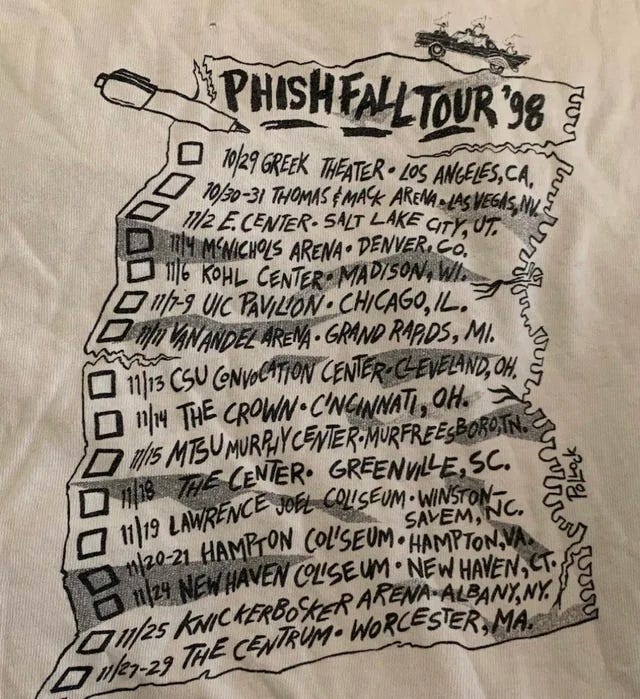 PHISH FALL TOUR '98
10/29 GREEK THEATER • LOS ANGELES, CA.
10/30-31 THOMAS & MACK ARENA • LAS VEGAS, NV.
11/2 E. CENTER • SALT LAKE CITY, UT.
11/4 McNICHOLS ARENA • DENVER, CO.
11/6 KOHL CENTER • MADISON, WI.
11/7-9 UIC PAVILION • CHICAGO, IL.
11/11 VAN ANDEL ARENA • GRAND RAPIDS, MI.
11/13 CSU CONVOCATION CENTER • CLEVELAND, OH.
11/14 THE CROWN • CINCINNATI, OH.
11/15 MTSU MURPHY CENTER • MURFREESBORO, TN.
11/18 THE CENTER • GREENVILLE, SC.
11/19 LAWRENCE JOEL COLISEUM • WINSTON-
SALEM, NC.
11/20-21 HAMPTON COLISEUM • HAMPTON, VA.
11/24 NEW HAVEN COLISEUM • NEW HAVEN, CT.
11/25 KNICKERBOCKER ARENA • ALBANY, NY.
11/27-29 THE CENTRUM • WORCESTER, MA.
Pollock